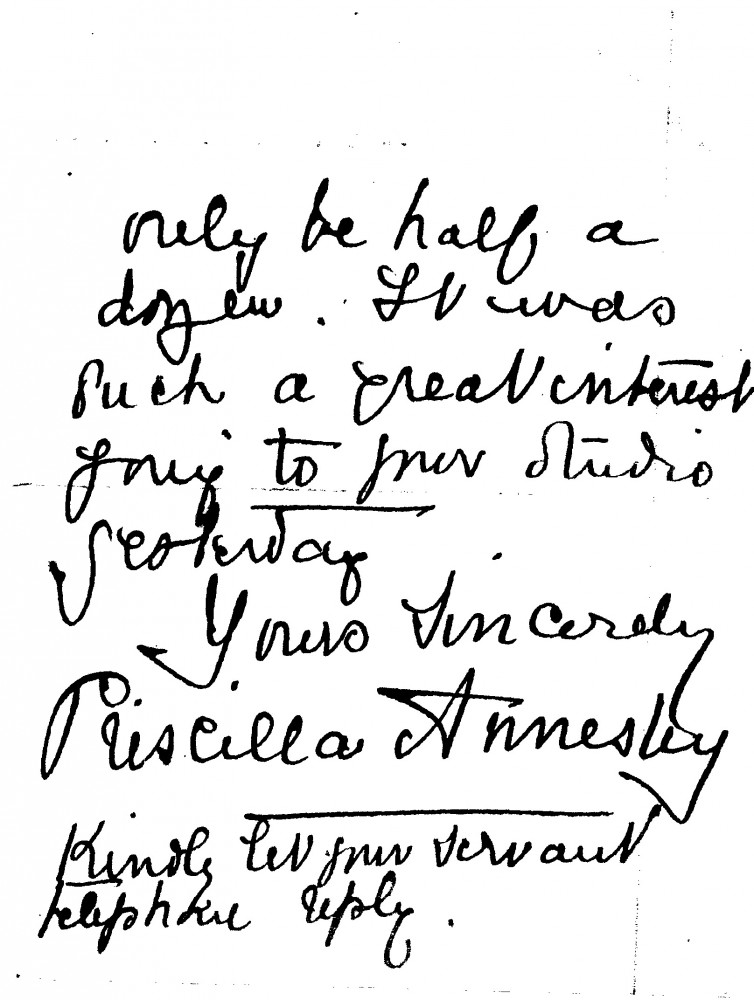 only be half a
dozen. It was
such a great interest
going to your studio
yesterday
Yours sincerely
Priscilla Annesley
Kindly let your servant
telephone reply.